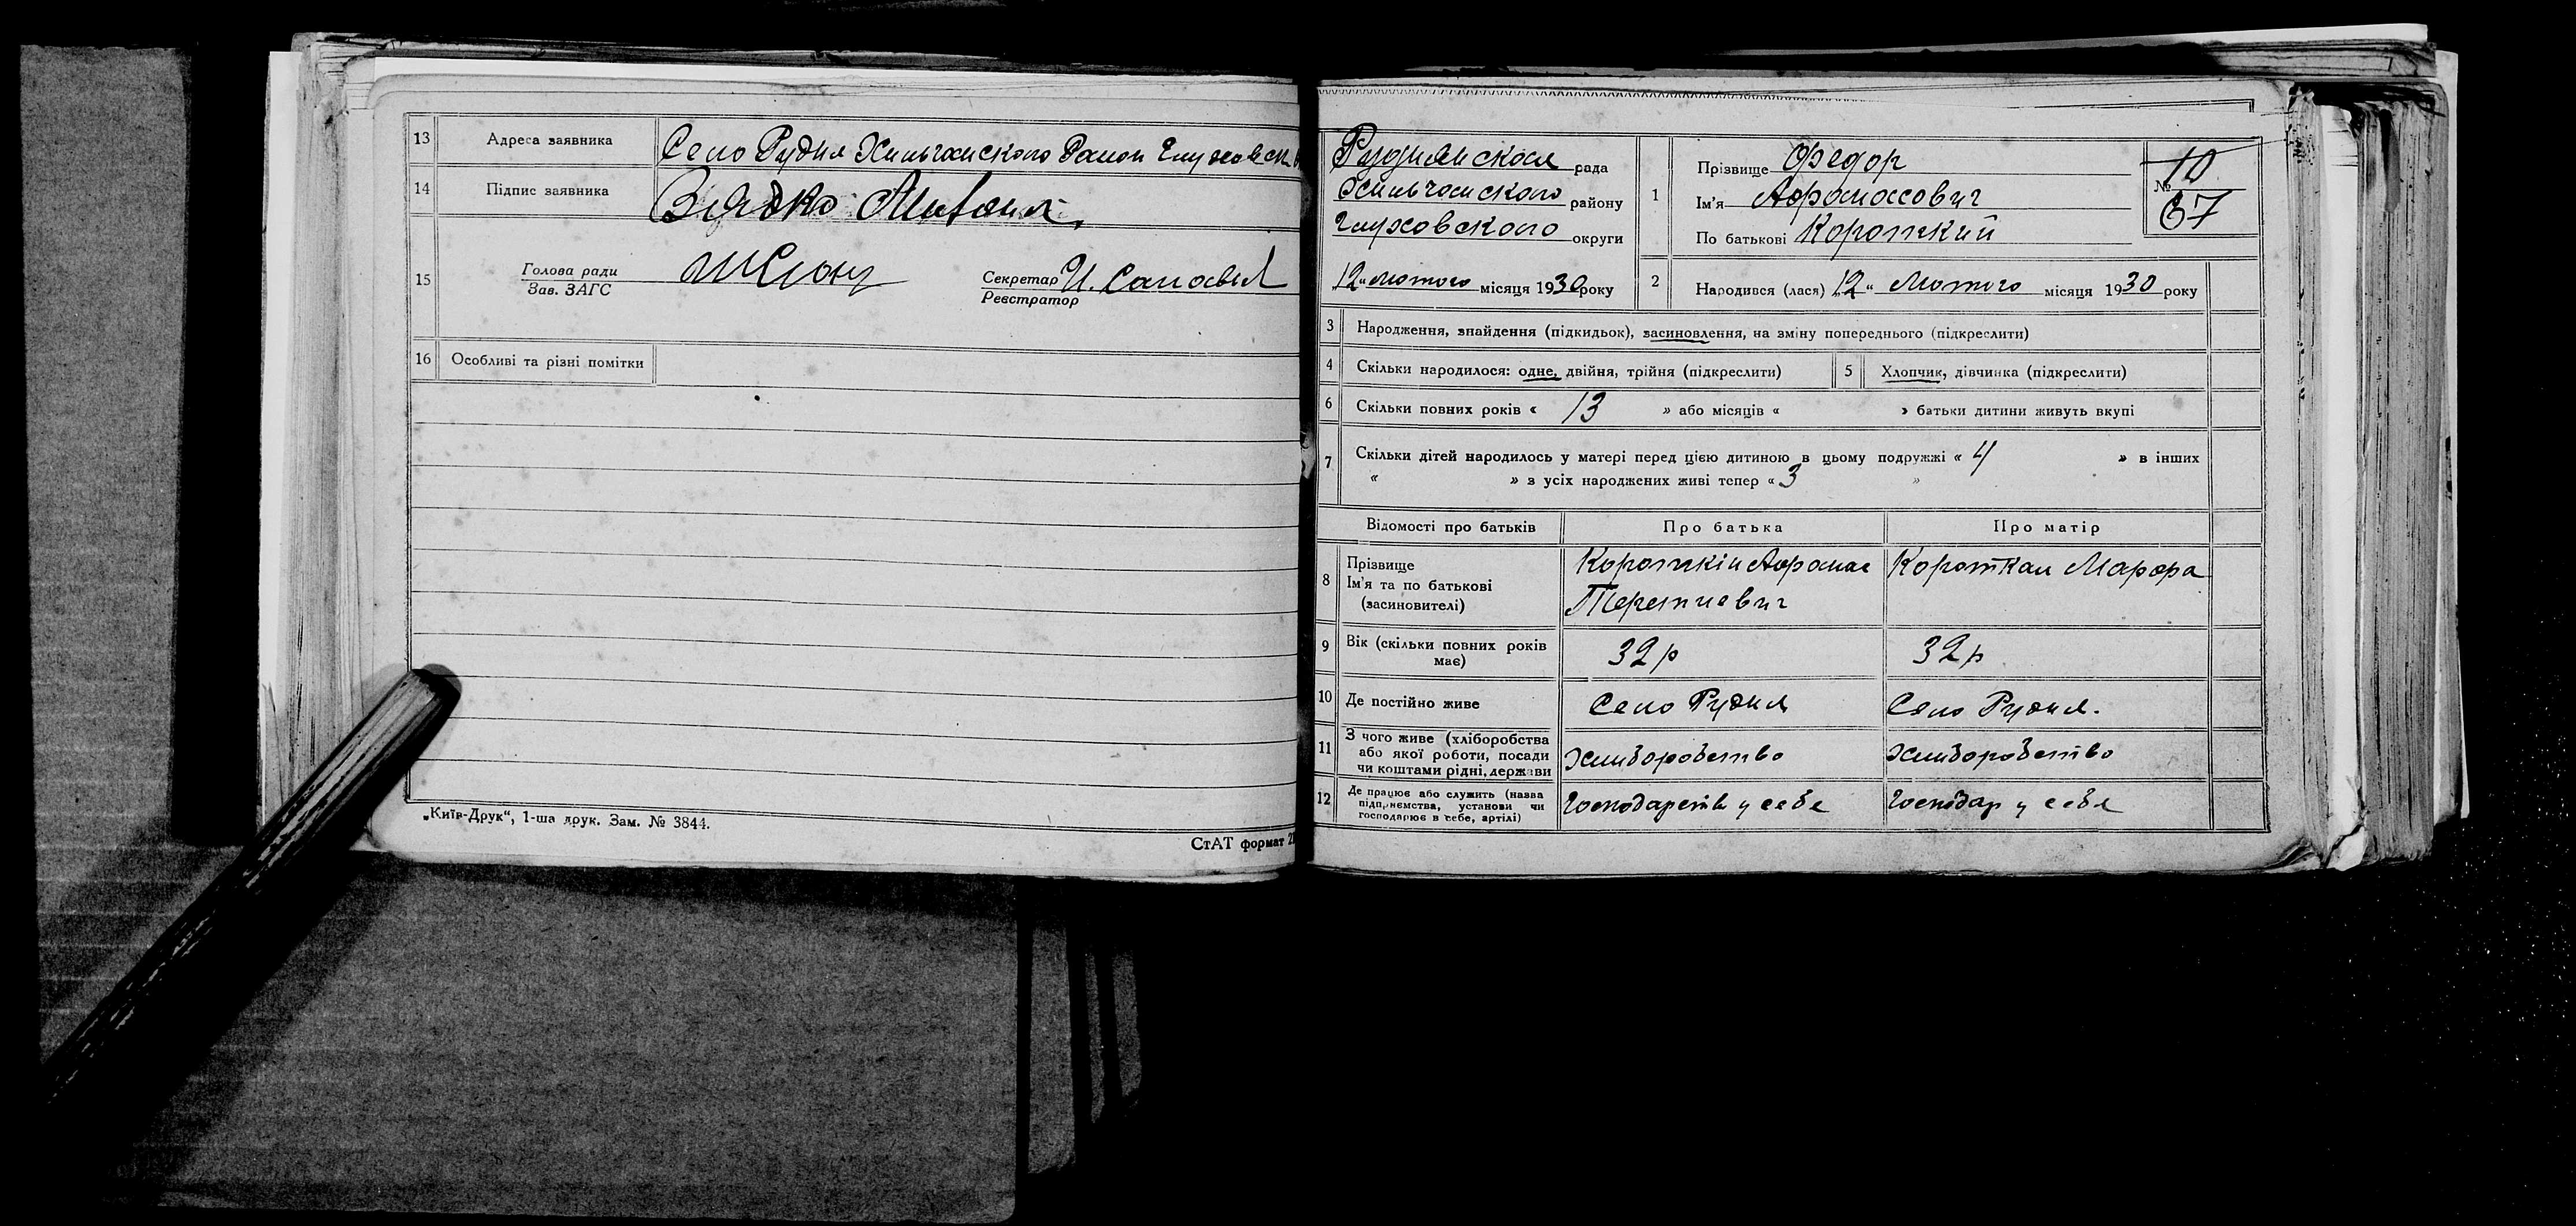 13 Адреса заявника Село Рудня Хильчанского Район Глуховск
14 Підпис заявника
15 Голова ради Зав. ЗАГС Секретар Реєстратор И.
16 Особливі та різні помітки
„Київ-Друк“, 1-ша друк. Зам. № 3844.
СтАТ формат
Руднянская рада
Хильчанского району
Глуховского округи
12 „ Лютого місяця 1930 року
1 Прізвище Федор
Ім'я Афонасович
По батькові Короткий
№ 10
67
2 Народився (лася) „12“ Лютого місяця 1930 року
3 Народження, знайдення (підкидьок), засиновлення, на зміну попереднього (підкреслити)
4 Скільки народилося: одне, двійня, трійня (підкреслити) 5 Хлопчик, дівчинка (підкреслити)
6 Скільки повних років « 13 » або місяців « » батьки дитини живуть вкупі
7 Скільки дітей народилось у матері перед цією дитиною в цьому подружжі « 4 » в інших
« » з усіх народжених живі тепер « 3 »
Відомості про батьків Про батька Про матір
8 Прізвище Ім'я та по батькові (засиновителі) Короткій Афонас Короткая Марфа
Терентиевич
9 Вік (скільки повних років має) 32 р 32 р
10 Де постійно живе Село Рудня Село Рудня.
11 З чого живе (хліборобства або якої роботи, посади чи коштами рідні, держави Хлиборобство Хлиборобство
12 Де працює або служить (назва підприємства, установи чи господарює в себе, артілі) Господарств у себе Господар у себя